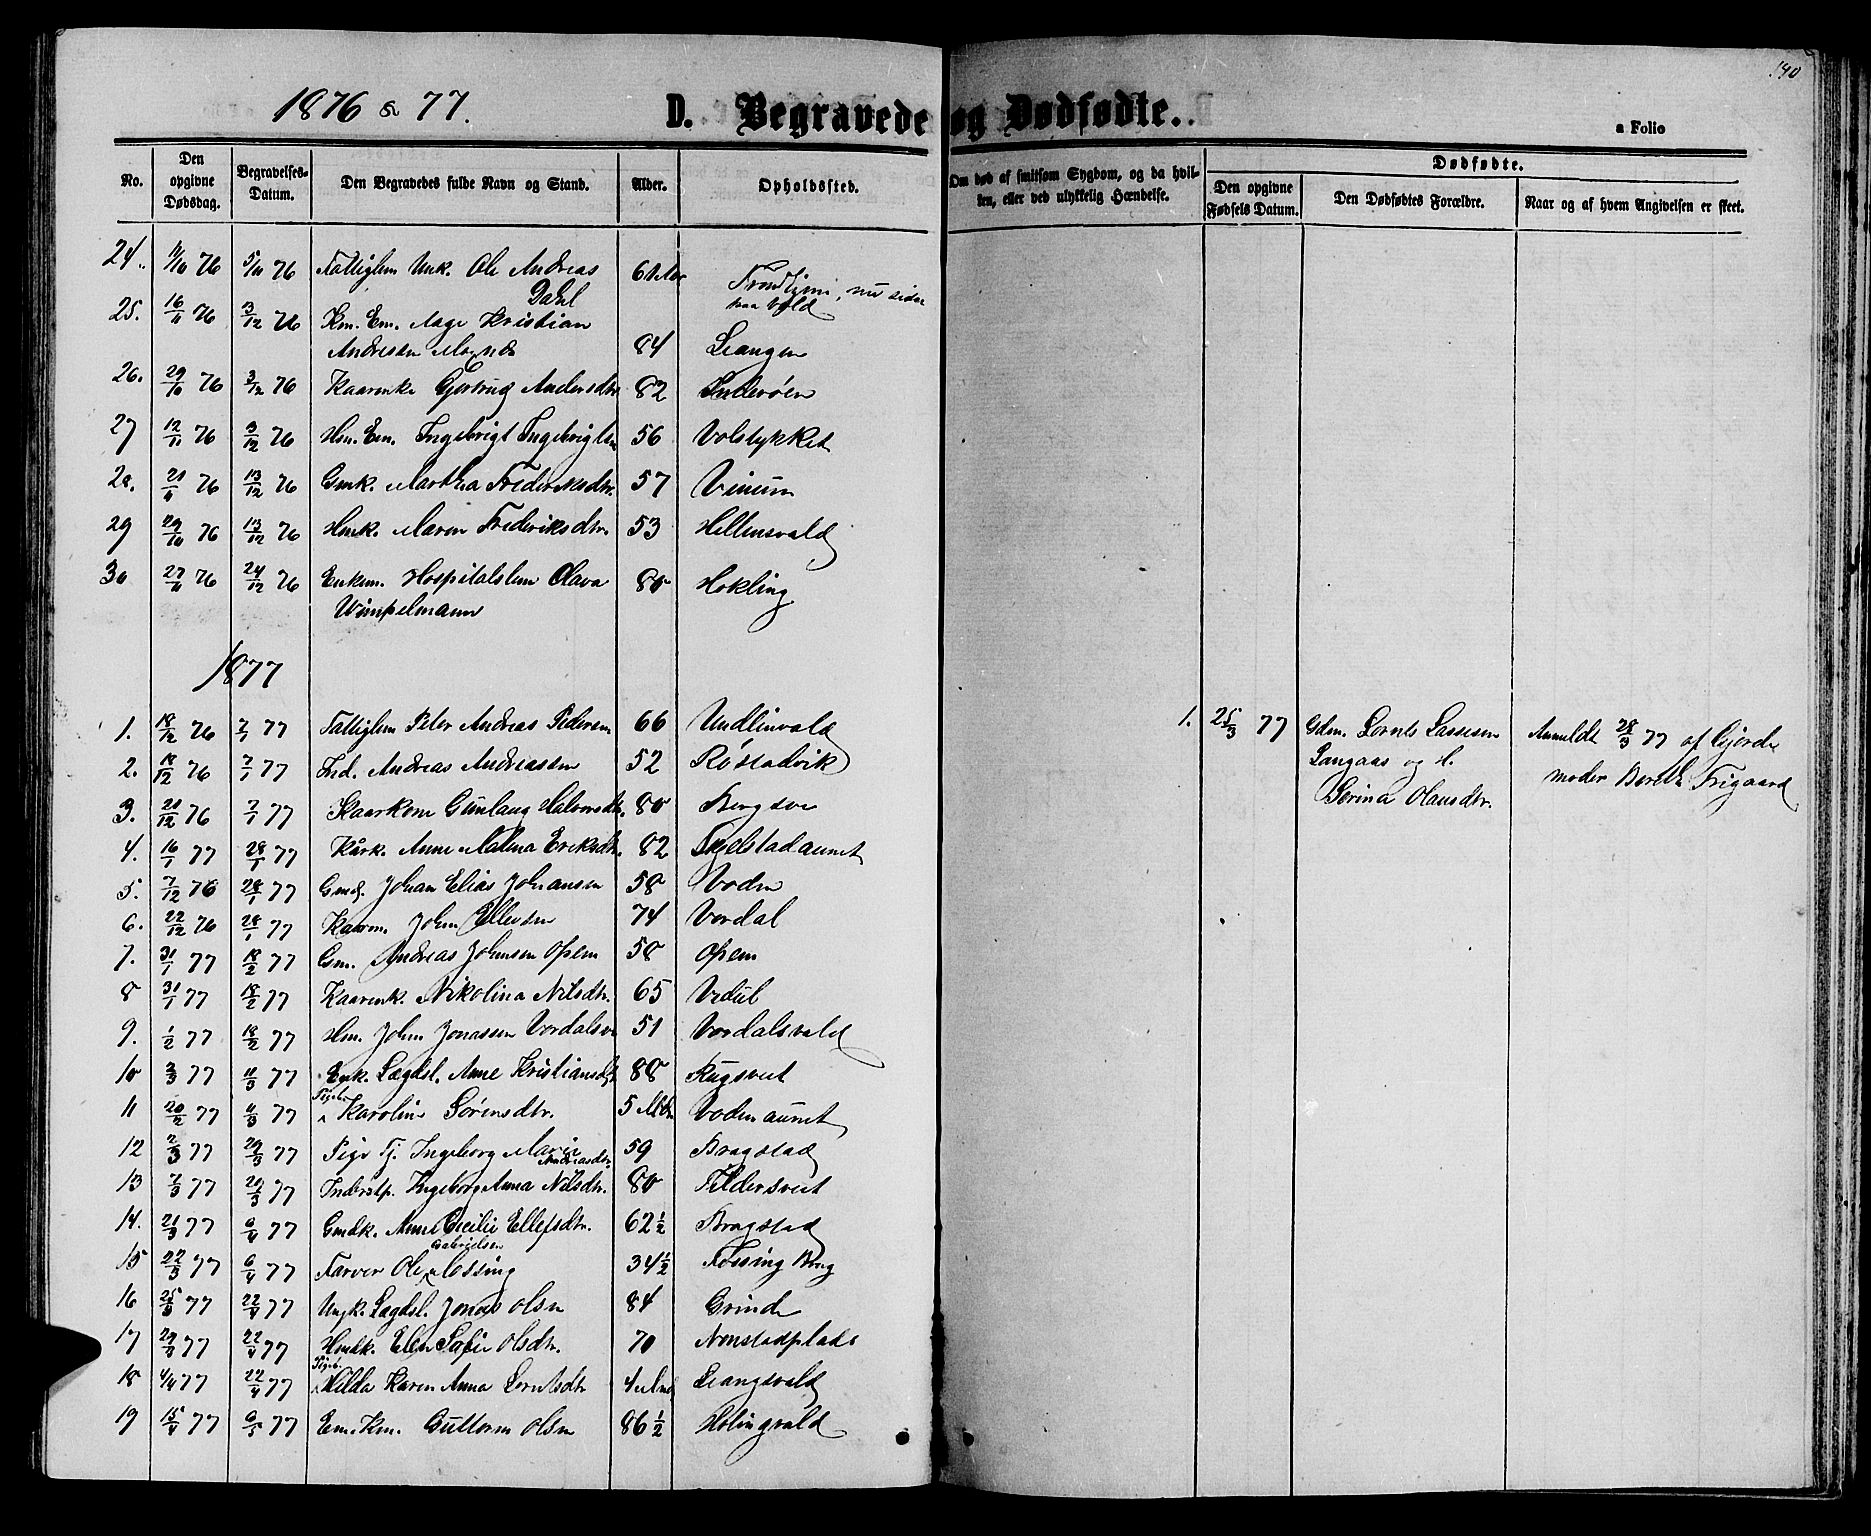 140
1876 & 77. D. Begravede og Dødfødte.
a Folio
No. Den opgivne Dødsdag. Begravelses-Datum. Den Begravedes fulde Navn og Stand. Alder. Opholdssted. Om død af smitsom Sygdom, og da hvilken, eller ved ulykkelig Hændelse. Dødfødte.
Den opgivne Fødsels Datum. Den Dødfødtes Forældre. Naar og af hvem Angivelsen er skeet.
24. 11/10 76 5/11 76 Fattiglem Unk. Ole Andreas Dahl 61 Trondhjem, nu sidst paa Vold
25. 16/11 76 3/12 76 Km. Em. Aage Kristian
Andresen 84 Leangen
26. 29/10 76 3/12 76 Kaarenke Gjertrug Andersdtr 82 Inderøen
27 12/11 76 3/12 76 Hm. Em. Ingebrigt Ingebrigtsn 56 Volstykket
28. 21/11 76 13/12 76 Gmk. Martha Frederiksdtr. 57 Vinum
29 29/10 76 13/12 76 Hmk. Maren Frederiksdtr. 53 Hellemsvald
30 27/11 76 24/12 76 Enkem. Hospitalslem Olava 80 Hokling
Wimpelmann
1877
1. 18/12 76 7/1 77 Fattiglem Peter Andreas Pedersen 66 Undlinvald
2. 18/12 76 7/1 77 Ind. Andreas Andreassen 52 Røstadvik
3. 21/12 76 7/1 77 Kaarkone Gunlaug Halvorsdtr. 80 Bergsve
4. 16/1 77 28/1 77 Kårk. Anne Malena Eriksdtr. 82 Skjelstadaunet
5. 7/12 76 28/1 77 Gmd. Johan Elias Johansen 58 Voden
6. 22/12 76 28/1 77 Kaarm. John Ellevsen 74 Vordal
7. 31/1 77 18/2 77 Gm. Andreas Johnsen Opem 58 Opem
8 31/1 77 18/2 77 Kaarenk. Nikolina Nilsdtr. 65 Vedul
9. 1/2 77 18/2 77 Hm. John Jonassen Vordalsv 51 Vordalsvald
10 2/3 77 11/3 77 Enk. Lægdsl. Anne Kristiansdtr 88 Rugsveet
11 20/2 77 11/3 77 Pigeb. Karoline Sørensdtr. 5 Mdr Vodenaunet
12 2/3 77 29/3 77 Pige Tj. Ingeborg Maria Andreasdtr. 59 Bragstad
13 7/3 77 29/3 77 Inderstp. Ingeborg Anna Nilsdtr. 80 Tildersveet
14. 21/3 77 6/4 77 Gmdk. Anne Cecilie Ellefsdtr. 62½ Bragstad
15 22/3 77 6/4 77 Farver Ole Gabrielsen Fossing 34½ Fossing Brug
16 25/3 77 22/4 77 Ungk. Lægdsl. Jonas Olsn 84 Grinde
17 29/3 77 22/4 77 Hmdk. Elen Sofie Olsdtr. 70 Nonstadplads
18 4/4 77 22/4 77 Pigeb. Hilda Karen Anna Lorntsdtr 4 Mnd Leangsvald
19 15/4 77 6/5 77 Em. Km. Guttorm Olsn 86½ Holingvald
1. 25/3 77 Gdm. Lornts Lassesen
Langaas og H.
Serina Olausdtr.
Anmeldt 28/3 77 af Gjorde
moder Bereth Trøgaard